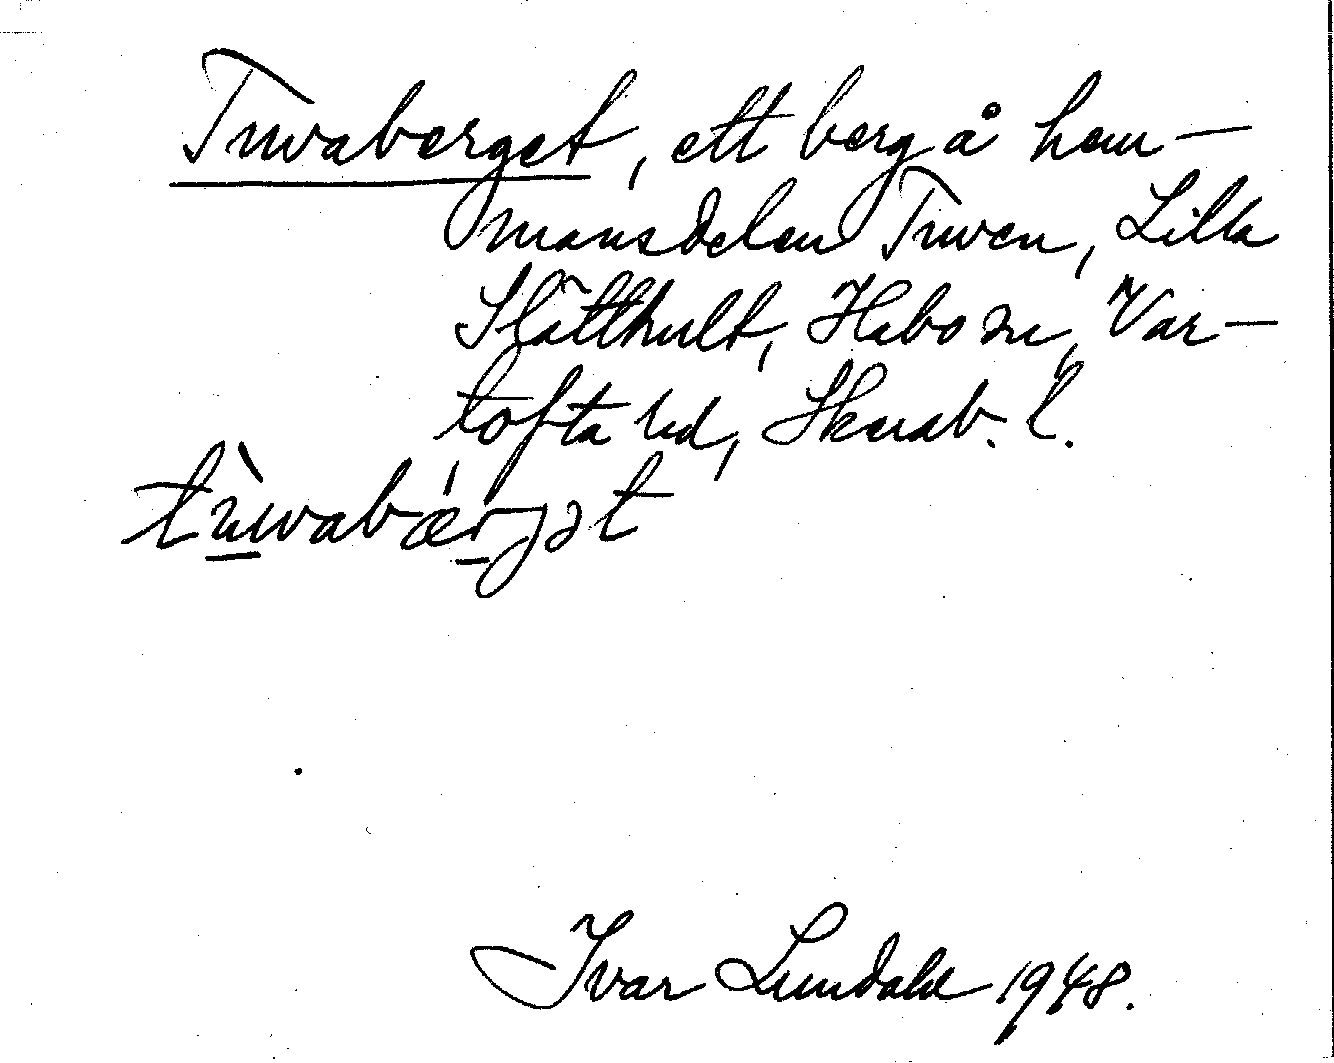 Tuvaberget, ett berg å hem-
mansdelen Tuven, Lilla
Slätthult, Habo sn, Var-
tofta hd, Skarab. l.
tù̲vabæ̍r̲jət
Ivar Lundahl 1948.